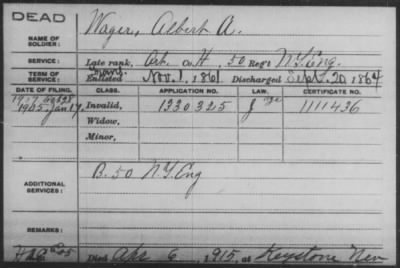 DEAD
NAME OF SOLDIER: Wager, Albert A.
SERVICE: Late rank, Art. Co. H, 50 Reg't N.Y. Eng.
TERM OF SERVICE: Enlisted Nov. 1, 1861 Discharged Sept. 20, 1864
DATE OF FILING. CLASS. APPLICATION NO. LAW. CERTIFICATE NO.
1905 Jan 17 Invalid, 1330325 J 1111436
Widow,
Minor,
ADDITIONAL SERVICES: B. 50 N.Y. Eng
REMARKS:
Died Apr 6, 1915, at Keystone Nev